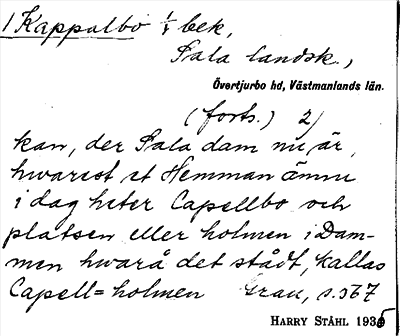 1 Kappalbo 1/4 bek,
Sala landsk.,
Övertjurbo hd, Västmanlands län.
(forts.) 2)
kan, der Sala dam nu är,
hwarest et Hemman ännu
i dag heter Capellbo och
platsen eller holmen i Dam-
men hwarå det stådt, kallas
Capell=holmen Grau, s.367
HARRY STÅHL 1935